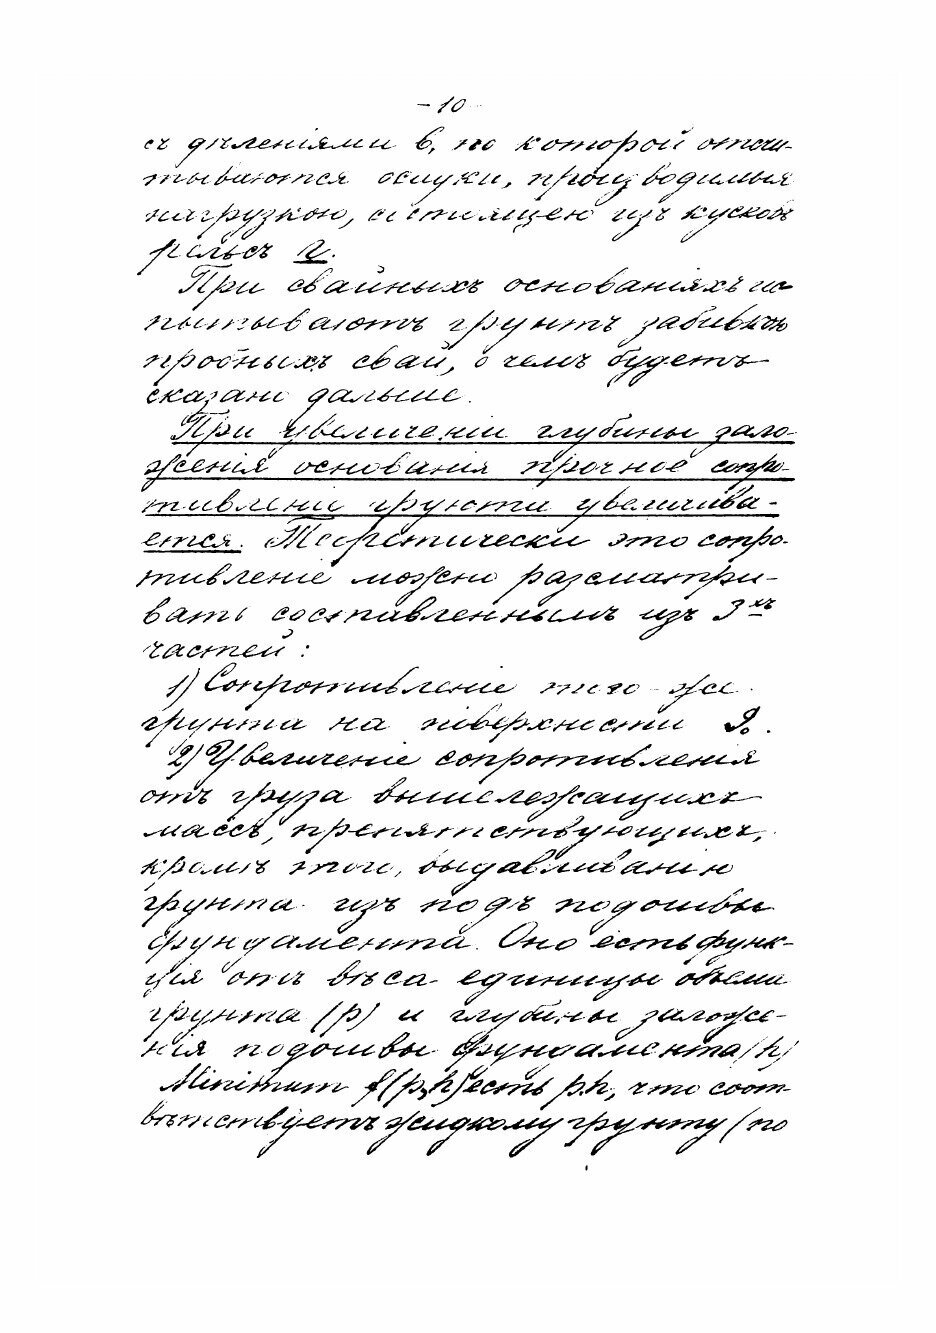 - 10
съ дѣленіями б, по которой отсчи-
тываются осадки, производимыя
нагрузкою, состоящею изъ кусковъ
рельсъ г.
При свайныхъ основаніяхъ ис
пытываютъ грунтъ забивкою
пробныхъ свай, о чемъ будетъ
сказано дальше.
При увеличеніи глубины зало-
женія основанія прочное сопро-
тивленіе грунта увеличива-
ется. Теоретически это сопро-
тивленіе можно разсматри-
вать составленнымъ изъ 3хъ
частей:
1) Сопротивленіе того-же
грунта на поверхности
2) Увеличеніе сопротивленія
отъ груза вышележащихъ
массъ, препятствующихъ,
кромѣ того, выдавливанію
грунта изъ подъ подошвы
фундамента. Оно есть функ-
ція отъ вѣса единицы объема
грунта (p) и глубины заложе-
нія подошвы фундамента (h)
Minimum f(p,h) есть p.h, что соот-
вѣтствуетъ жидкому грунту (по